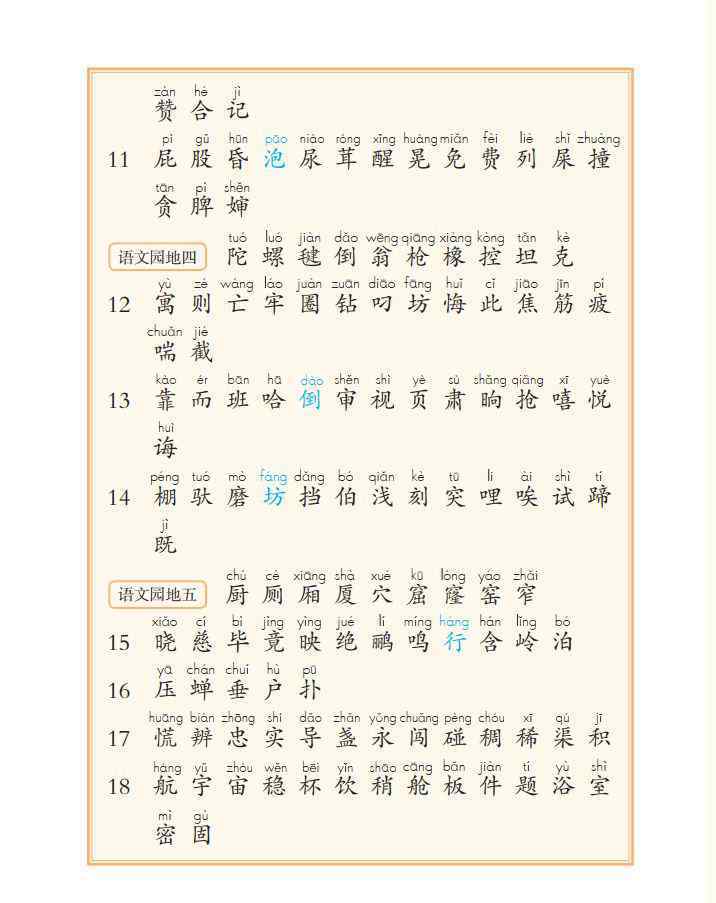 zàn hé jì
赞 合 记
pì gǔ hūn pāo niào róng xǐng huàng miǎn fèi liè shǐ zhuàng
11 屁 股 昏 泡 尿 茸 醒 晃 免 费 列 屎 撞
tān pí shěn
贪 脾 婶
tuó luó jiàn dǎo wēng qiāng xiàng kòng tǎn kè
语文园地四 陀 螺 毽 倒 翁 枪 橡 控 坦 克
yù zé wáng láo juàn zuān diāo fāng huǐ cǐ jiāo jīn pí
12 寓 则 亡 牢 圈 钻 叼 坊 悔 此 焦 筋 疲
chuǎn jié
喘 截
kào ér bān hā dào shěn shì yè sù shǎng qiǎng xī yuè
13 靠 而 班 哈 倒 审 视 页 肃 晌 抢 嘻 悦
huì
诲
péng tuó mò fáng dǎng bó qiǎn kè tū li ài shì tí
14 棚 驮 磨 坊 挡 伯 浅 刻 突 哩 唉 试 蹄
jì
既
chú cè xiāng shà xué kū lóng yáo zhǎi
语文园地五 厨 厕 厢 厦 穴 窟 窿 窑 窄
xiǎo cí bì jìng yìng jué lí míng háng hán lǐng bó
15 晓 慈 毕 竟 映 绝 鹂 鸣 行 含 岭 泊
yā chán chuí hù pū
16 压 蝉 垂 户 扑
huāng biàn zhōng shí dǎo zhǎn yǒng chuǎng pèng chóu xī qú jī
17 慌 辨 忠 实 导 盏 永 闯 碰 稠 稀 渠 积
háng yǔ zhòu wěn bēi yǐn shāo cāng bǎn jiàn tí yù shì
18 航 宇 宙 稳 杯 饮 稍 舱 板 件 题 浴 室
mì gù
密 固